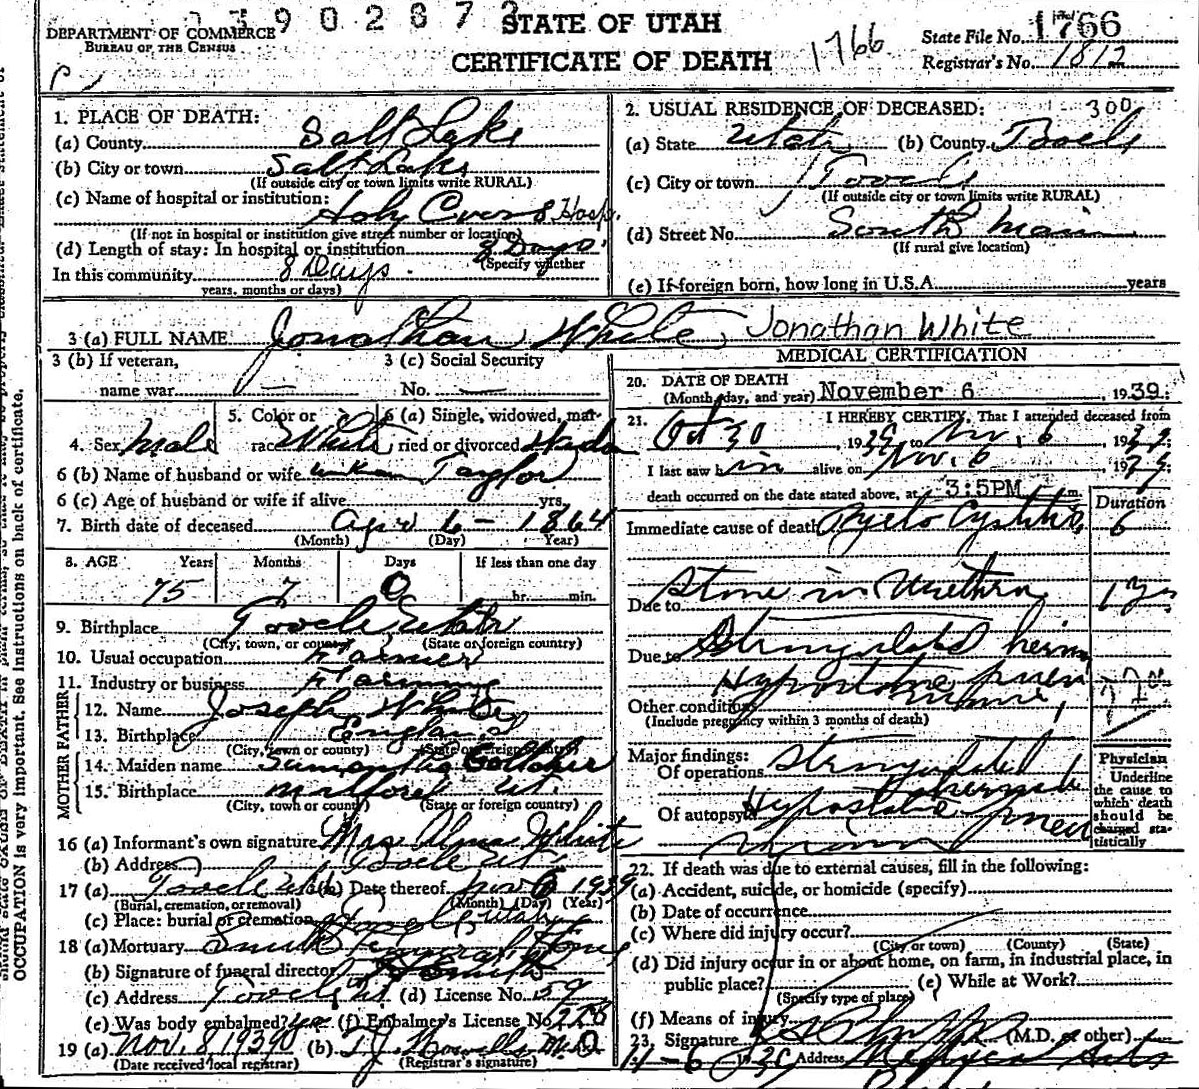 0390287
STATE OF UTAH
DEPARTMENT OF COMMERCE
BUREAU OF THE CENSUS
CERTIFICATE OF DEATH
1766
State File No. 1766
Registrar's No. 1812
1. PLACE OF DEATH:
(a) County Salt Lake
(b) City or town Salt Lake
(If outside city or town limits write RURAL)
(c) Name of hospital or institution:
Holy Cross Hosp.
(If not in hospital or institution give street number or location)
(d) Length of stay: In hospital or institution 8 Days
(Specify whether
In this community 8 Days.
years, months or days)
2. USUAL RESIDENCE OF DECEASED: 300
(a) State Utah (b) County Tooele
(c) City or town Tooele
(If outside city or town limits write RURAL)
(d) Street No. South Main
(If rural give location)
(e) If foreign born, how long in U.S.A. years
3 (a) FULL NAME Jonathan White Jonathan White
3 (b) If veteran,
name war
3 (c) Social Security
No.
4. Sex Male
5. Color or
race White
6 (a) Single, widowed, mar-
ried or divorced
6 (b) Name of husband or wife Taylor
6 (c) Age of husband or wife if alive yrs.
7. Birth date of deceased Apr 6 - 1864
(Month) (Day) Year)
8. AGE Years Months Days If less than one day
75 7 0 hr. min.
9. Birthplace Tooele Utah
(City, town, or county) (State or foreign country)
10. Usual occupation Farmer
11. Industry or business Farming
FATHER
12. Name Joseph White
13. Birthplace England
(City, town or county) (State or foreign country)
MOTHER
14. Maiden name
15. Birthplace Ut.
(City, town or county) (State or foreign country)
16 (a) Informant's own signature Mrs Alma White
(b) Address Tooele Ut
17 (a) Tooele Utah (b) Date thereof Nov 1939
(Burial, cremation, or removal) (Month) (Day) (Year)
(c) Place: burial or cremation Tooele Utah
18 (a) Mortuary Funeral Home
(b) Signature of funeral director Smith
(c) Address Tooele Ut (d) License No. 59
(e) Was body embalmed? yes (f) Embalmer's License No.
19 (a) Nov. 8 1939 (b) T.J. Howells M.D.
(Date received local registrar) (Registrar's signature)
MEDICAL CERTIFICATION
20. DATE OF DEATH
(Month, day, and year) November 6, 1939.
21. I HEREBY CERTIFY, That I attended deceased from
Oct 30, 1939 to Nov. 6, 1939;
I last saw him alive on Nov. 6, 1939;
death occurred on the date stated above, at 3:5PM m.
Duration
Immediate cause of death Pyelo Cystitis 6
Due to Stone in Urethra 1 yr
Due to Strangulated hernia
Other conditions
(Include pregnancy within 3 months of death)
Major findings:
Of operations Strangulated
Of autopsy Hypostatic
Physician
Underline
the cause to
which death
should be
charged sta-
tistically
22. If death was due to external causes, fill in the following:
(a) Accident, suicide, or homicide (specify)
(b) Date of occurrence
(c) Where did injury occur?
(City or town) (County) (State)
(d) Did injury occur in or about home, on farm, in industrial place, in
public place? (e) While at Work?
(Specify type of place)
(f) Means of injury
23. Signature (M.D. or other)
11-6 1939 Address
OCCUPATION is very important. See instructions on back of certificate.